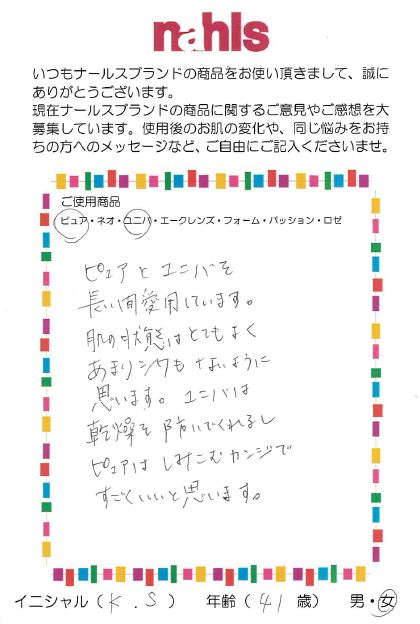 nahls
いつもナールスブランドの商品をお使い頂きまして、誠に
ありがとうございます。
現在ナールスブランドの商品に関するご意見やご感想を大
募集しています。使用後のお肌の変化や、同じ悩みをお持
ちの方へのメッセージなど、ご自由にご記入くださいませ。
ご使用商品
ピュア・ネオ・ユニバ・エークレンズ・フォーム・パッション・ロゼ
ピュアとユニバを
長い間愛用しています。
肌の状態はとてもよく
あまりシワもないように
思います。ユニバは
乾燥を防いでくれるし
ピュアはしみこむカンジで
すごくいいと思います。
イニシャル（K.S） 年齢（41歳） 男・女